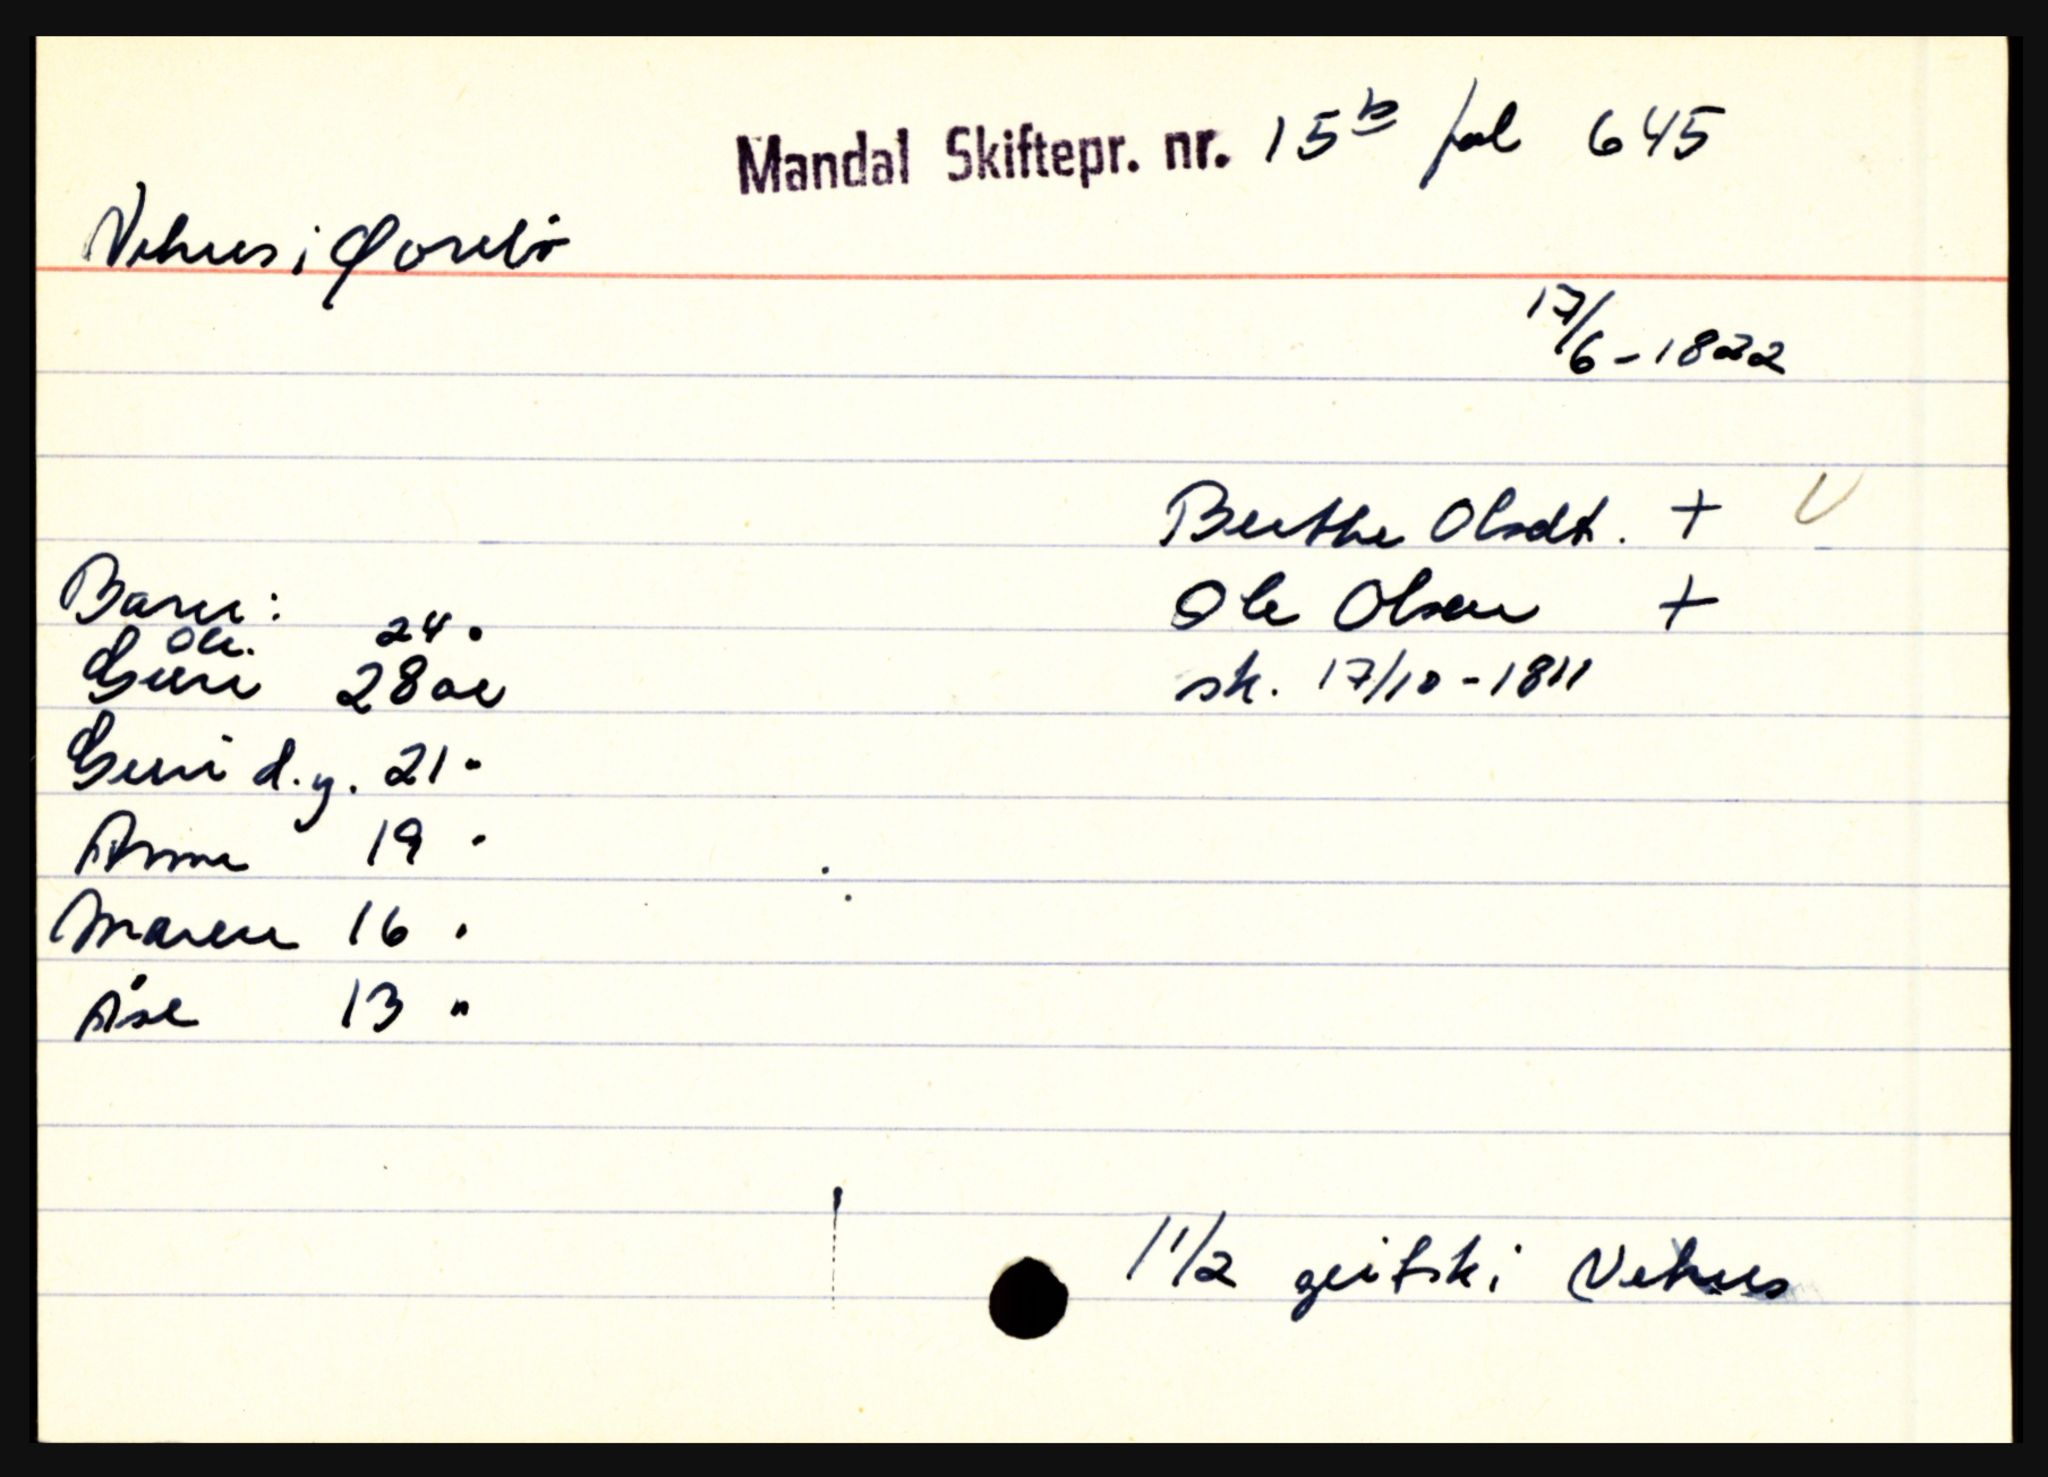 Mandal Skiftepr. nr. 15b fol 645
Vehus i Øvrebö
17/6-1822
Berthe Olsdt. +
Barn:
Ole Olsen +
Ole. 24 "
Guri 28 år
sk. 17/10-1811
Guri d.y. 21 "
Anne 19 "
Maren 16 "
Åse 13 "
1 1/2 geitsk i Vehus